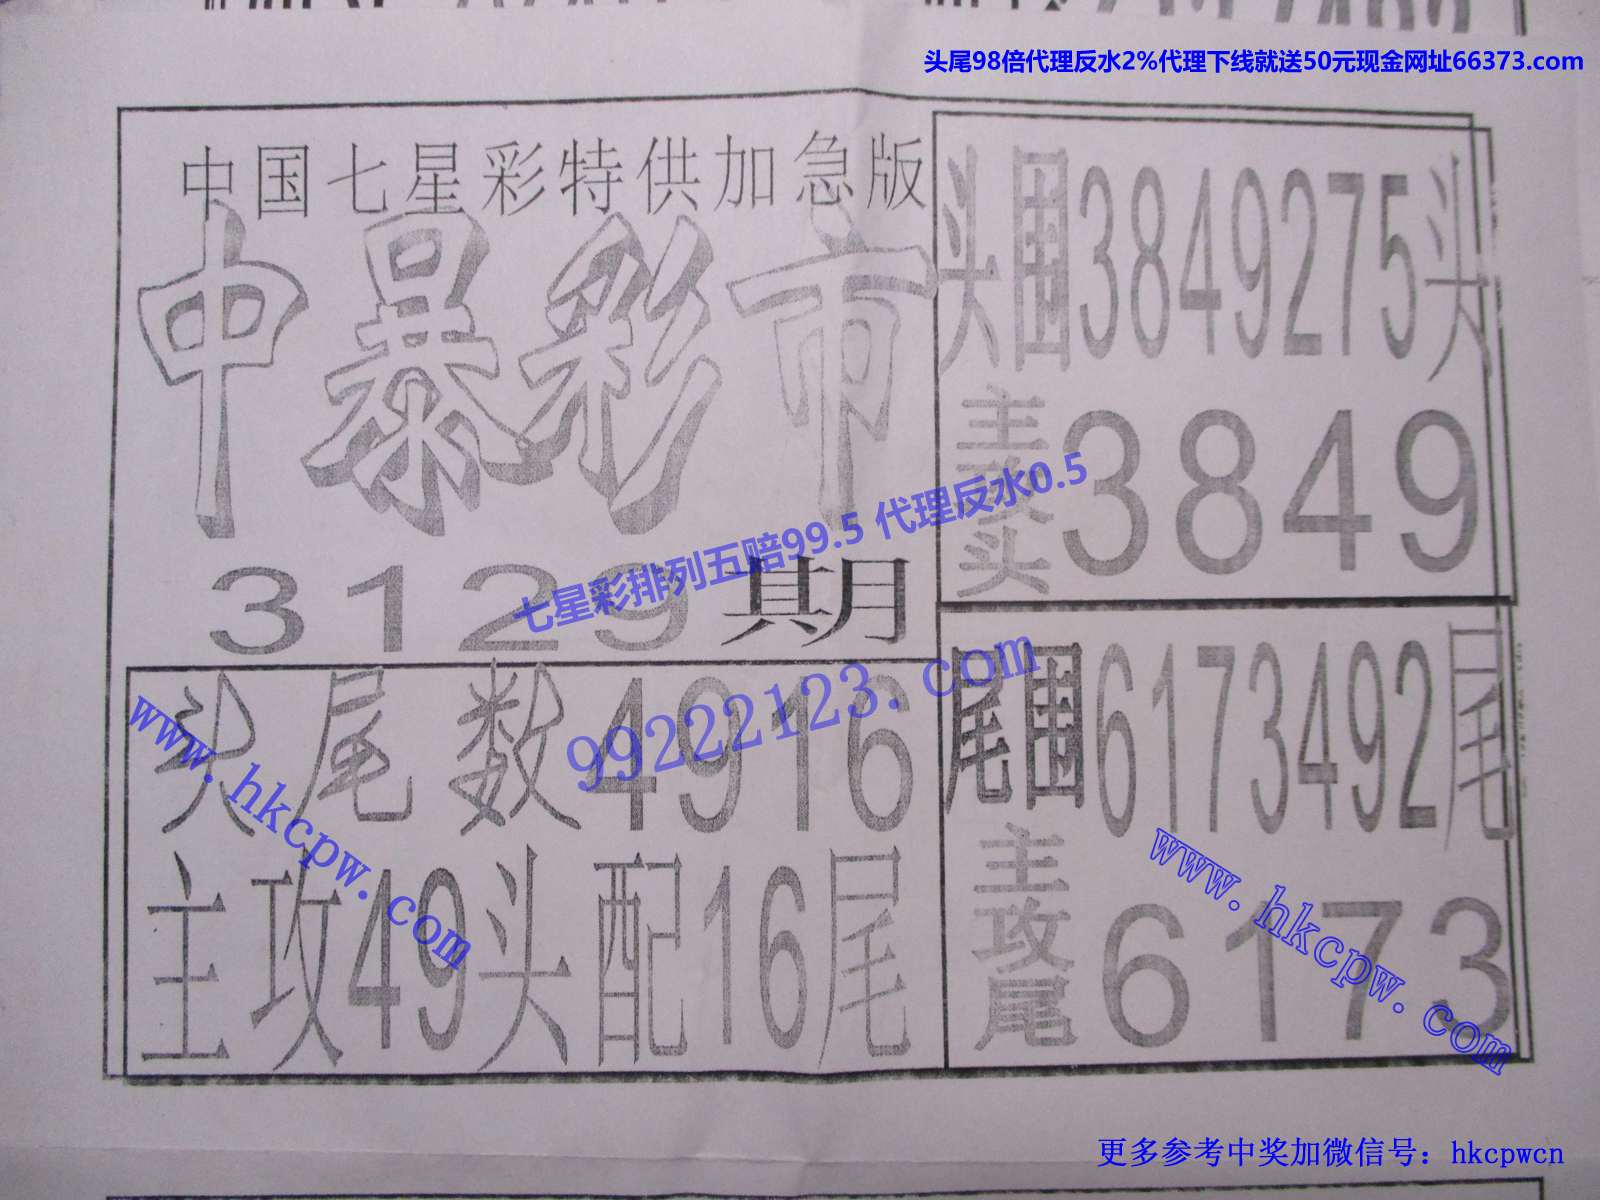 头尾98倍代理反水2%代理下线就送50元现金网址66373.com
中国七星彩特供加急版
中暴彩市
3129期
头围3849275头
主攻头3849
七星彩排列五赔99.5 代理反水0.5
99222123.com
头尾数4916
主攻49头配16尾
www.hkcpw.com
尾围6173492尾
主攻尾6173
www.hkcpw.com
更多参考中奖加微信号：hkcpwcn